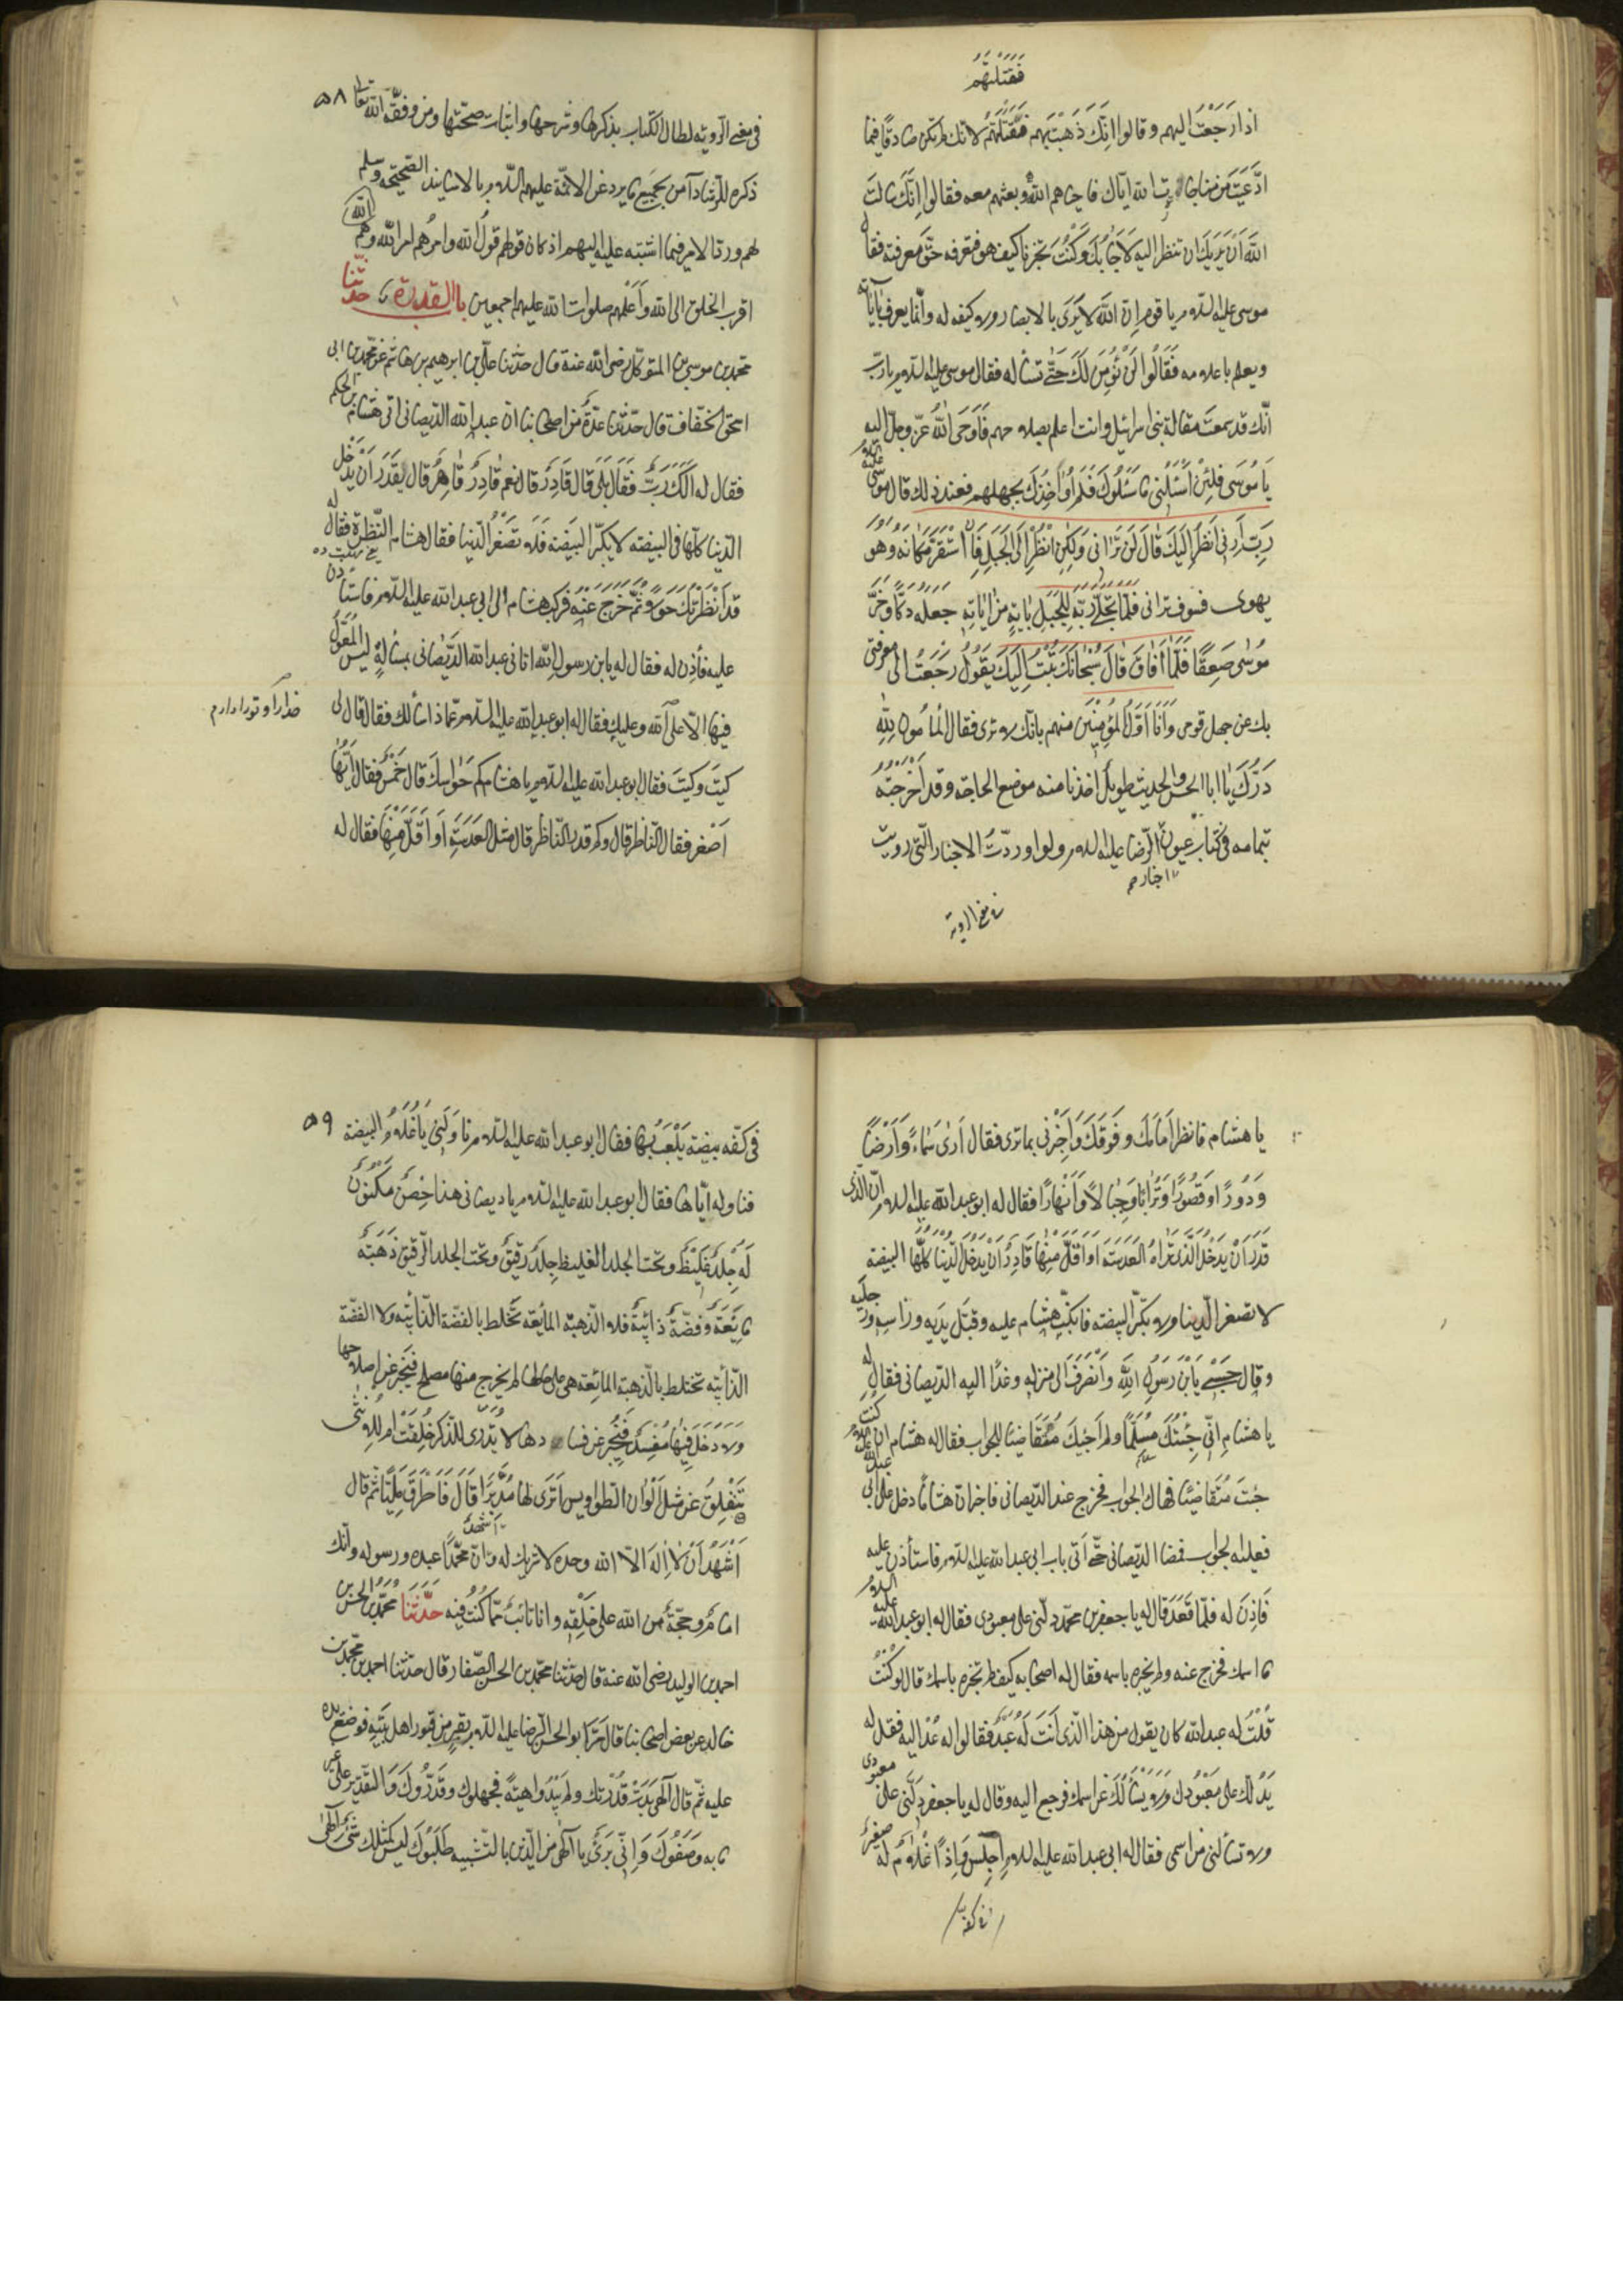 فقتلتهم
اذا رجعت اليهم وقالوا انك ذهبت بهم فقتلتهم لانك لم تكن صادقا فيما
ادعيت من مناجاة الله اياك فاحياهم الله وبعثهم معه فقالوا انك لو سالت
الله ان يريك ان تنظر اليه لاجابك وكنت تخبرنا كيف هو فنعرفه حق معرفته فقال
موسى عليه السلام يا قوم ان الله لا يرى بالابصار ولا كيفية له وانما يعرف باياته
ويعلم باعلامه فقالوا لن نؤمن لك حتى تسأله فقال موسى عليه السلام يا رب
انك قد سمعت مقالة بنى اسرائيل وانت اعلم بصلاحهم فاوحى الله عز وجل اليه
يا موسى اسئلنى ما سئلوك فلم اؤاخذك بجهلهم فعند ذلك قال موسى عليه السلام
رب ارنى انظر اليك قال لن ترانى ولكن انظر الى الجبل فان استقر مكانه وهو
يهوى فسوف ترانى فلما تجلى ربه للجبل باية من اياته جعله دكا وخر
موسى صعقا فلما افاق قال سبحانك تبت اليك يقول رجعت الى معرفتى
بك عن جهل قومى وانا اول المؤمنين منهم بانك لا ترى فقال المأمون لله
درك يا ابا الحسن والحديث طويل اخذنا منه موضع الحاجة وقد اخرجته
بتمامه فى كتاب عيون الرضا عليه السلام ولو اوردت الاخبار التى رويت
اخبار
فى معنى الروية
فى معنى الروية لطال الكتاب بذكرها وشرحها واثبات صحتها ومن وفقه الله تعالى ٥٨
ذكره للرشاد آمن بجميع ما يرد عن الائمة عليهم السلام بالاسانيد الصحيحه وسلم
لهم ورد الامر فيما اشتبه عليه اليهم اذ كان قولهم قول الله وامرهم امر الله وهم
اقرب الخلق الى الله واعلمهم صلوات الله عليهم اجمعين باب القدرة حدثنا
محمد بن موسى بن المتوكل رضى الله عنه قال حدثنا على بن ابرهيم بن هاشم عن محمد بن ابى
اسحق الخفاف قال حدثنا عدة من اصحابنا ان عبد الله الديصانى اتى هشام بن الحكم
فقال له الك رب فقال بلى قال قادر قال نعم قادر قاهر قال يقدر ان يدخل
الدنيا كلها فى البيضة لا يكبر البيضة ولا تصغر الدنيا فقال هشام النظرة فقال له
قد انظرتك حولا ثم خرج عنه فركب هشام الى ابى عبد الله عليه السلام فاستأذن
عليه فأذن له فقال له يابن رسول الله اتانى عبد الله الديصانى بمسألة ليس المعول
فيها الا على الله وعليك فقال له ابو عبد الله عليه السلام عما ذا سألك فقال قال لى
كيت وكيت فقال ابو عبد الله عليه السلام يا هشام كم حواسك قال خمس فقال ايها
اصغر فقال الناظر قال وكم قدر الناظر قال مثل العدسة او اقل منها فقال له
يا هشام فانظر امامك وفوقك واخبرنى بما ترى فقال ارى سماء وارضا
ودورا وقصورا وترابا وجبالا وانهارا فقال له ابو عبد الله عليه السلام ان الذى
قدر ان يدخل الذى تراه العدسة او اقل منها قادر ان يدخل الدنيا كلها البيضة
لا تصغر الدنيا ولا تكبر البيضة فانكب هشام عليه وقبل يديه وراسه ورجليه
وقال حسبى يابن رسول الله وانصرف الى منزله وغدا اليه الديصانى فقال له
يا هشام انى جئتك مسلما ولم اجئك متقاضيا للجواب فقال له هشام ان كنت
جئت متقاضيا فهاك الجواب فخرج عنه الديصانى فاخبر ان هشاما دخل على ابى عبد الله عليه السلام
فعلمه الجواب فمضى الديصانى حتى اتى باب ابى عبد الله عليه السلام فاستأذن عليه
فاذن له فلما قعد قال له يا جعفر بن محمد دلنى على معبودى فقال له ابو عبد الله عليه السلام
ما اسمك فخرج عنه ولم يخبره باسمه فقال له اصحابه كيف لم تخبره باسمك قال لو كنت
قلت له عبد الله كان يقول من هذا الذى انت له عبد فقالوا له عد اليه فقل له
يدلك على معبودك ولا يسألك عن اسمك فرجع اليه وقال له يا جعفر دلنى على معبودى
ولا تسألنى عن اسمى فقال له ابى عبد الله عليه السلام اجلس واذا غلام له صغير
فى كفه
فى كفه بيضة يلعب بها فقال ابو عبد الله عليه السلام ناولنى يا غلام البيضة ٥٩
فناوله اياها فقال ابو عبد الله عليه السلام يا ديصانى هذا حصن مكنون
له جلد غليظ وتحت الجلد الغليظ جلد رقيق وتحت الجلد الرقيق ذهبة
مايعة وفضة ذائبة فلا الذهبة المائعة تختلط بالفضة الذائبة ولا الفضة
الذائبة تختلط بالذهبة المائعة هى على حالها لم يخرج منها مصلح فيخبر عن اصلاحها
ولا دخل فيها مفسد فيخبر عن فسادها لا يدرى للذكر خلقت ام للانثى
تنفلق عن مثل الوان الطواويس اترى لها مدبرا قال فاطرق مليا ثم قال
اشهد ان لا اله الا الله وحده لا شريك له وان محمدا عبده ورسوله وانك
امام وحجة من الله على خلقه وانا تائب مما كنت فيه حدثنا محمد بن الحسن بن
احمد بن الوليد رضى الله عنه قال حدثنا محمد بن الحسن الصفار قال حدثنا احمد بن محمد بن
خالد عن بعض اصحابنا قال مر ابو الحسن الرضا عليه السلام بقبر من قبور اهل بيته فوضع يده
عليه ثم قال الهى بدت قدرتك ولم تبد واهية فجهلوك وقدروك والتقدير على غير
ما به وصفوك وانى برىء يا الهى من الذين بالتشبيه طلبوك ليس كمثلك شىء الهى